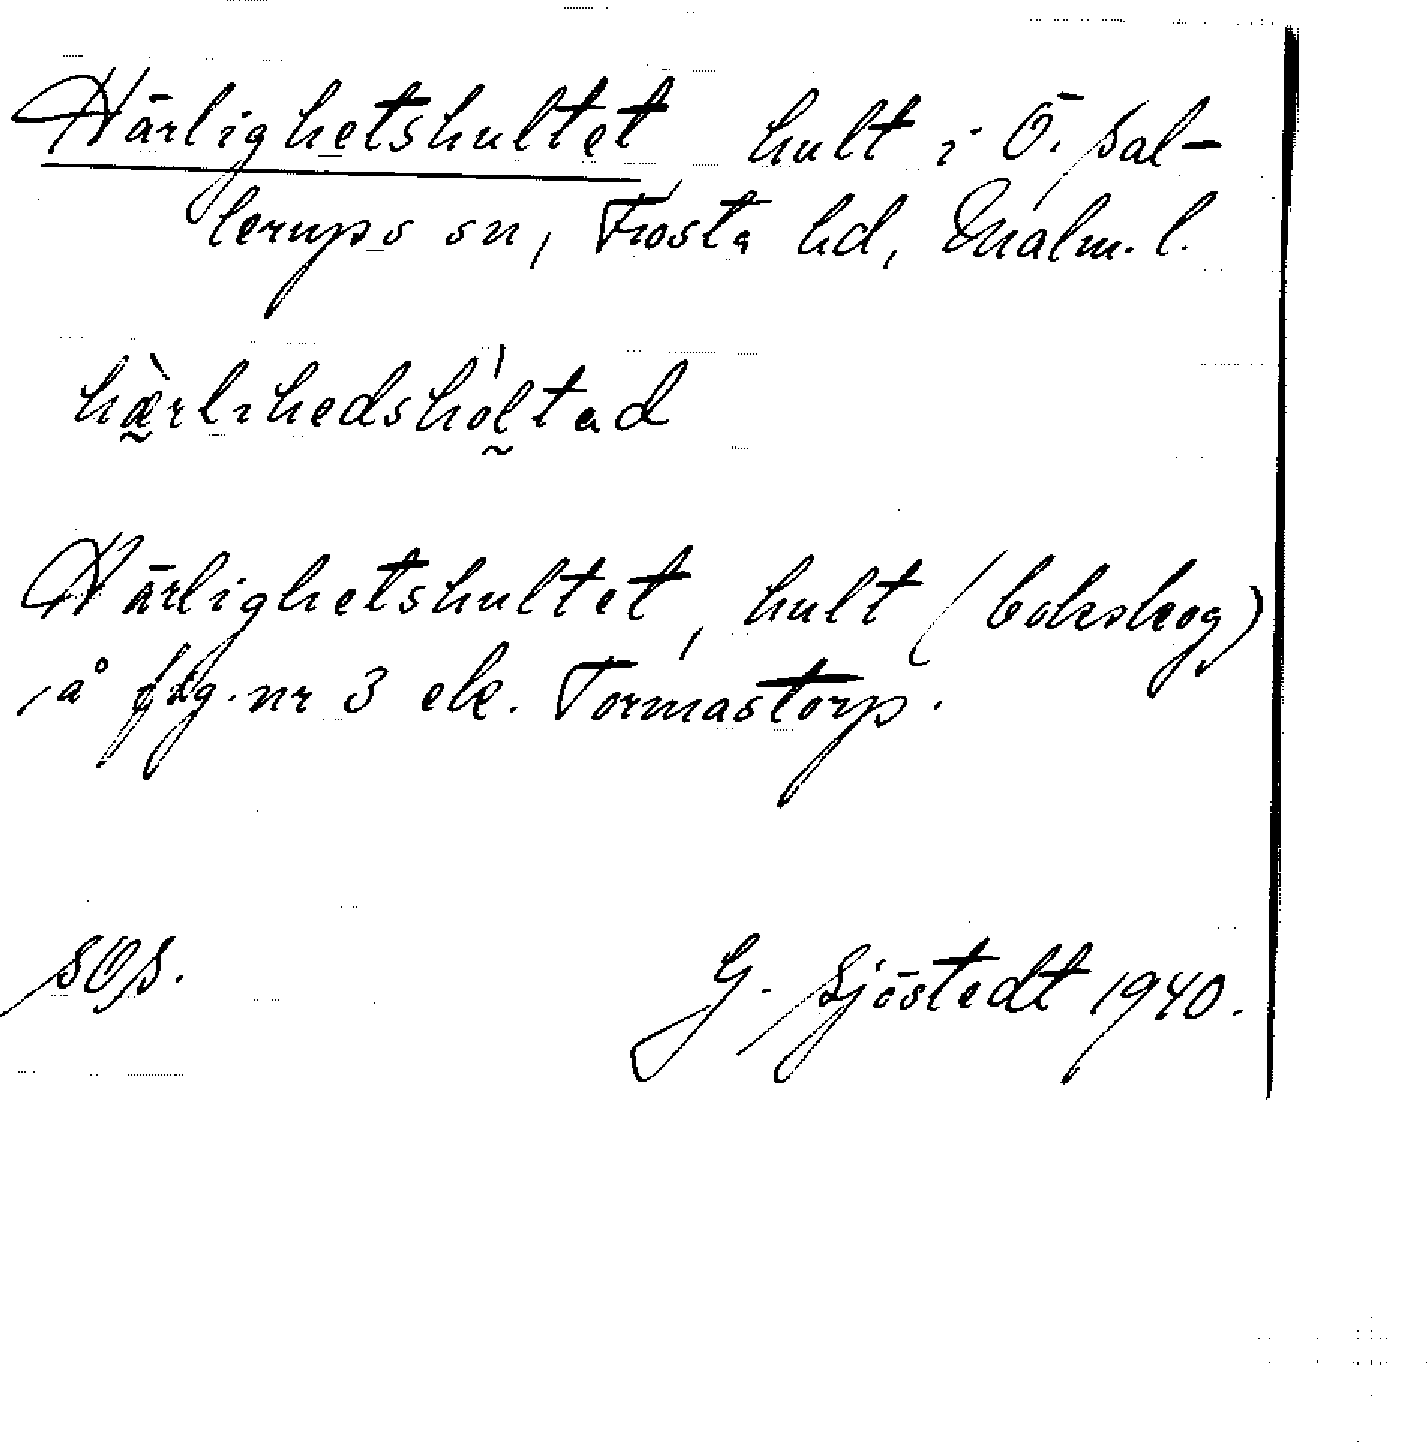 Härlighetshultet, hult i Ö. Sal-
lerups sn, Frosta hd, Malm. l.
hæ̀rlihedshól̰tad
Härlighetshultet, hult (bokskog)
å fig. nr 3 ek. Tormastorp.
SOS.
G. Sjöstedt 1940.